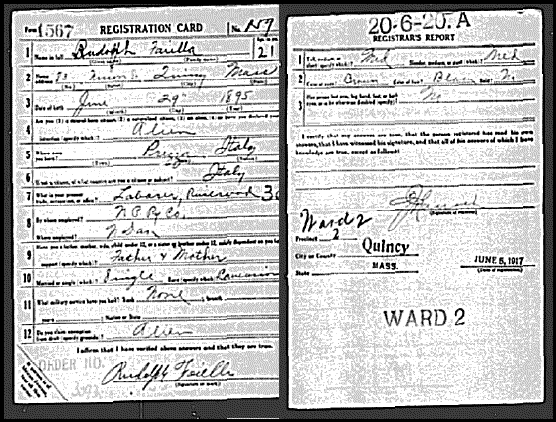 Form 1567 REGISTRATION CARD No. 119
1 Name in full Rudolph Faiella Age in yrs. 21
(Given name) (Family name)
2 Home address 73 Quincy Mass
(No.) (Street) (City) (State)
3 Date of birth June 29 1895
(Month) (Day) (Year)
4 Are you (1) a natural-born citizen, (2) a naturalized citizen, (3) an alien, (4) or have you declared your
intention (specify which)? Alien
5 Where were you born? Italy
(Town) (State) (Nation)
6 If not a citizen, of what country are you a citizen or subject? Italy
7 What is your present trade, occupation, or office? Laborer,
8 By whom employed?
Where employed?
9 Have you a father, mother, wife, child under 12, or a sister or brother under 12, solely dependent on you for
support (specify which)? Father & Mother
10 Married or single (which)? Single Race (specify which)? Caucasian
11 What military service have you had? Rank None ; branch
years Nation or State
12 Do you claim exemption from draft (specify grounds)? Alien
I affirm that I have verified above answers and that they are true.
ORDER NO.
Rudolph Faiella
(Signature or mark)
20-6-20. A
REGISTRAR'S REPORT
1 Tall, medium, or short (specify which)? Med Slender, medium, or stout (which)? Med
2 Color of eyes? Brown Color of hair? Black Bald? No
3 Has person lost arm, leg, hand, foot, or both
eyes, or is he otherwise disabled (specify)? No
I certify that my answers are true, that the person registered has read his own
answers, that I have witnessed his signature, and that all of his answers of which I have
knowledge are true, except as follows:
(Signature of registrar)
Ward 2
Precinct 2
City or County Quincy
State MASS.
JUNE 5, 1917
(Date of registration)
WARD 2